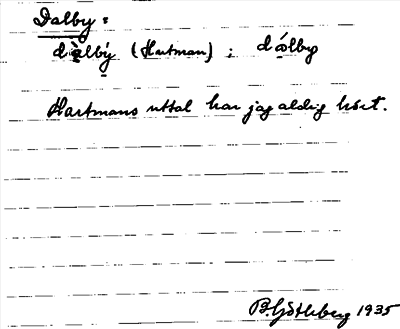 Dalby:
dàlbý (Hartman); dálby
Hartmans uttal har jag aldrig hört.
B. Götlberg 1935